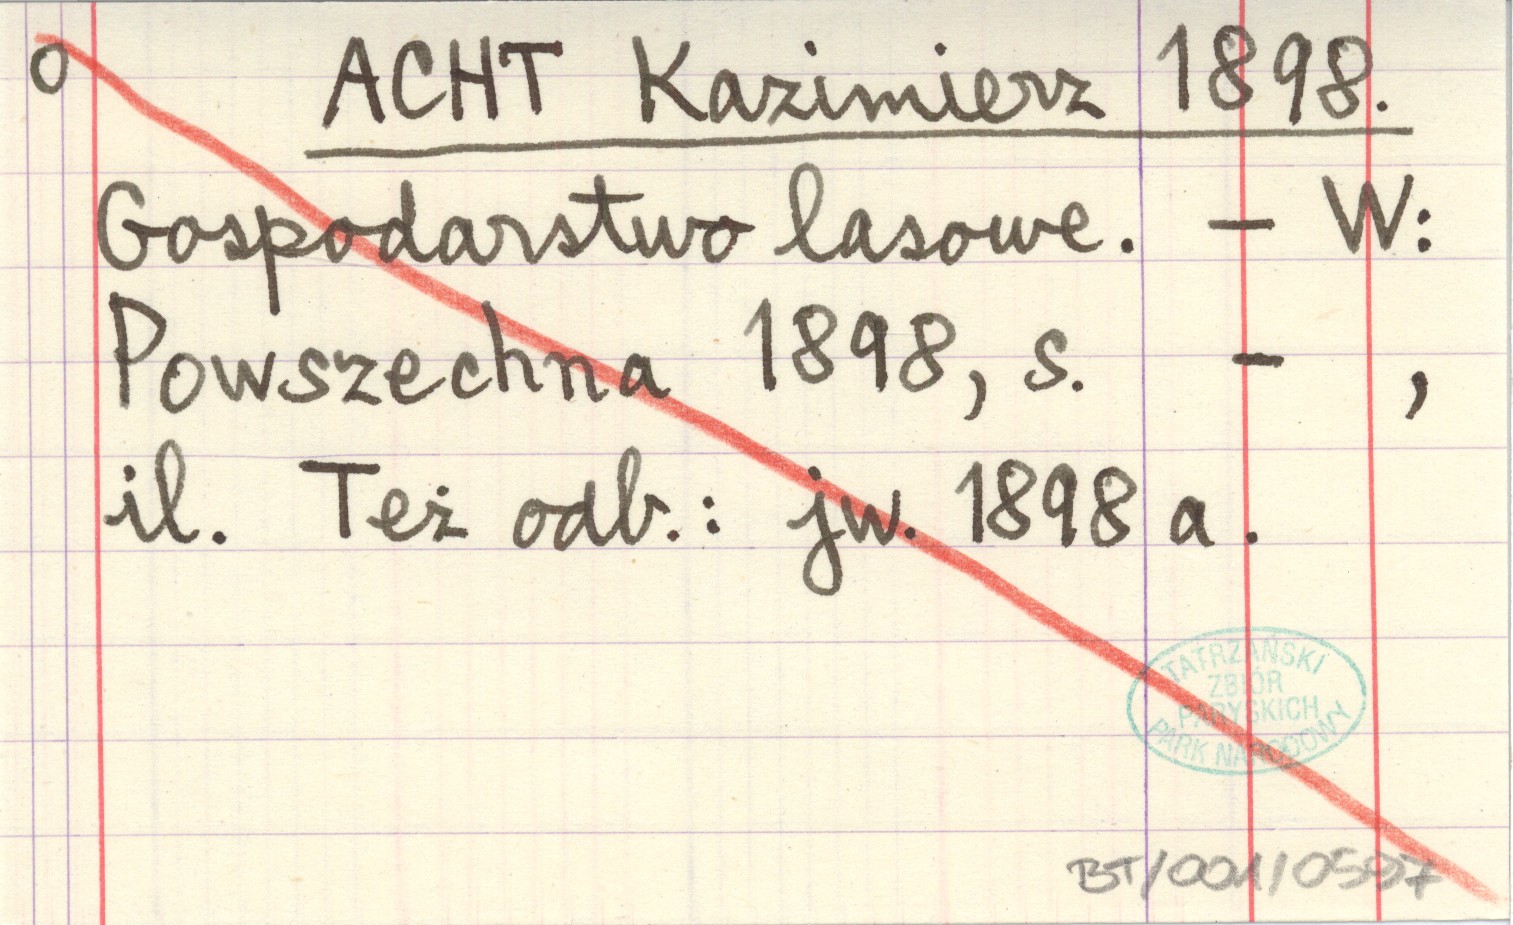 o ACHT Kazimierz 1898.
Gospodarstwo lasowe. – W:
Powszechna 1898, s. – ,
il. Też odb.: jw. 1898 a.
TATRZAŃSKI
ZBIÓR
PARYSKICH
PARK NARODOWY